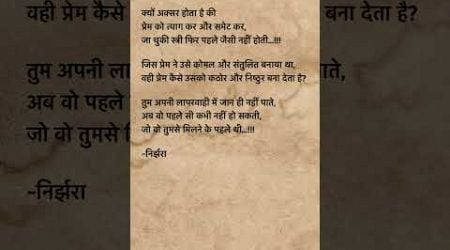 क्यों अक्सर होता है की
प्रेम को त्याग कर और समेट कर,
जा चुकी स्त्री फिर पहले जैसी नहीं होती...!!!
जिस प्रेम ने उसे कोमल और संतुलित बनाया था,
वही प्रेम कैसे उसको कठोर और निष्ठुर बना देता है?
तुम अपनी लापरवाही में जान ही नहीं पाते,
अब वो पहले सी कभी नहीं हो सकती,
जो वो तुमसे मिलने के पहले थी...!!!
~निर्झरा
वही प्रेम कैसे
बना देता है?
तुम अपनी ला
पाते,
अब वो पहले
जो वो तुमसे
~निर्झरा